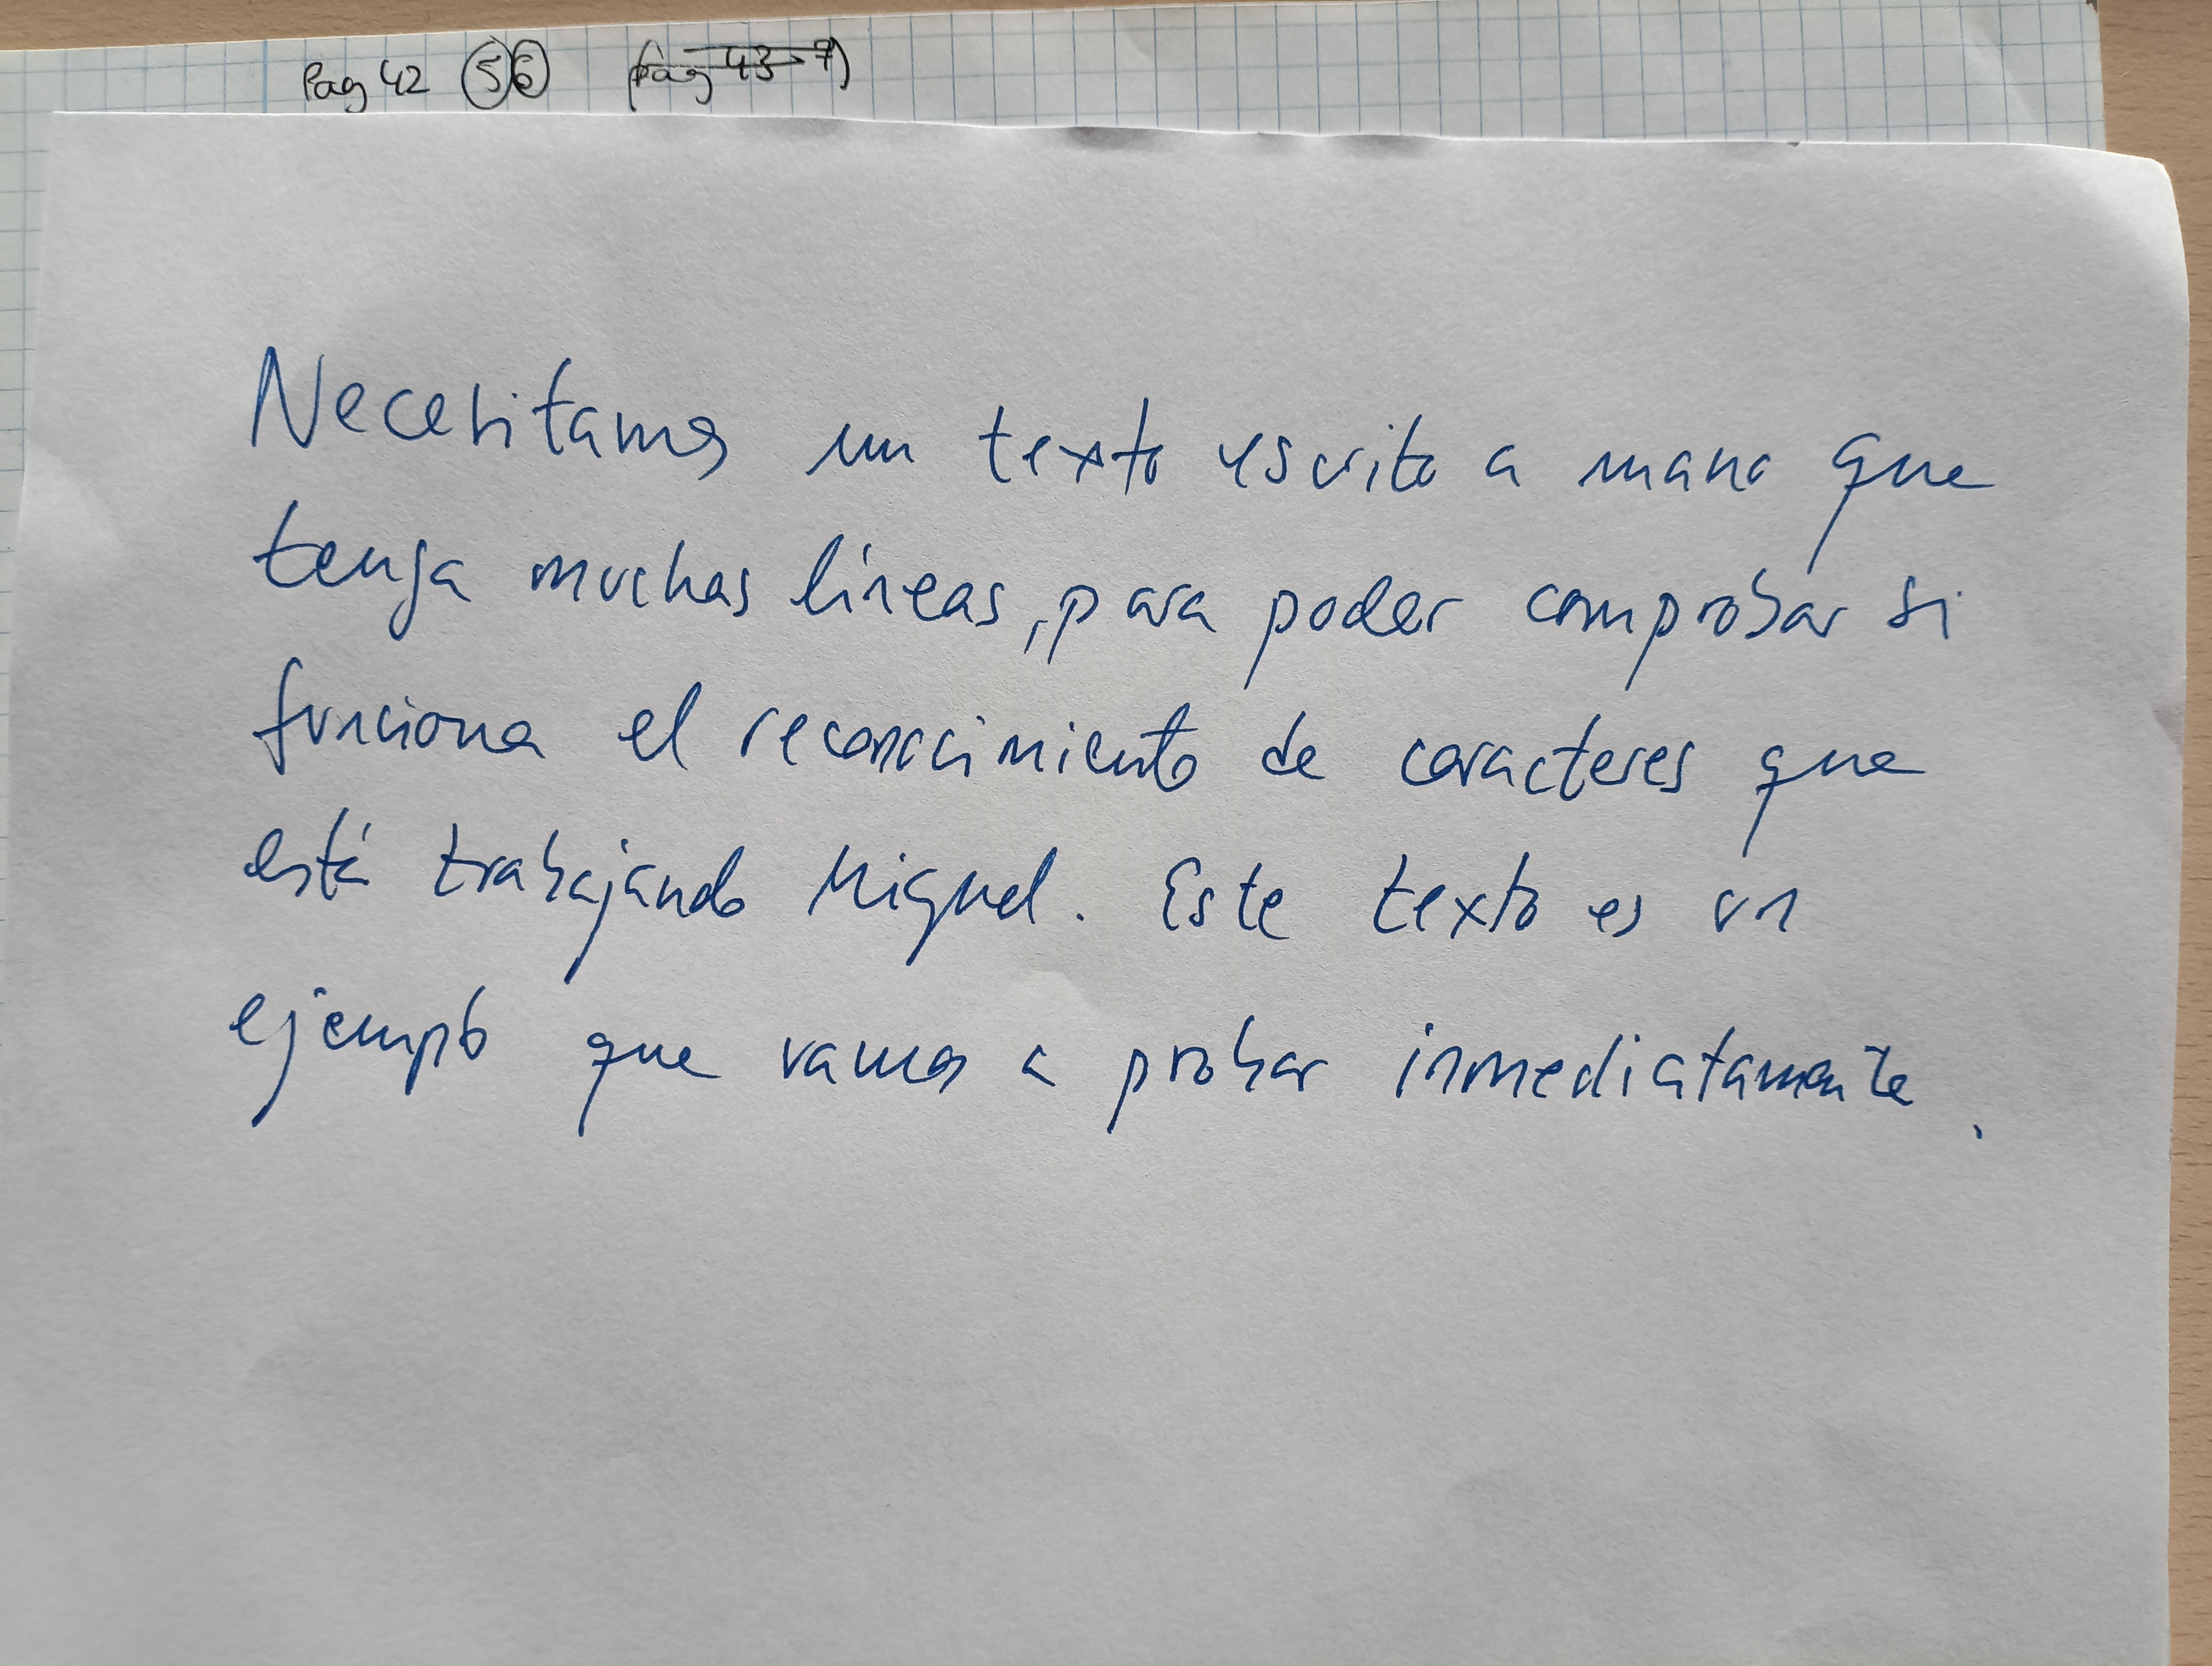 Pag 42 5 6 (Pag 43 → 7)
Necesitamos un texto escrito a mano que
tenga muchas líneas, para poder comprobar si
funciona el reconocimiento de caracteres que
está trabajando Miguel. Este texto es un
ejemplo que vamos a probar inmediatamente.